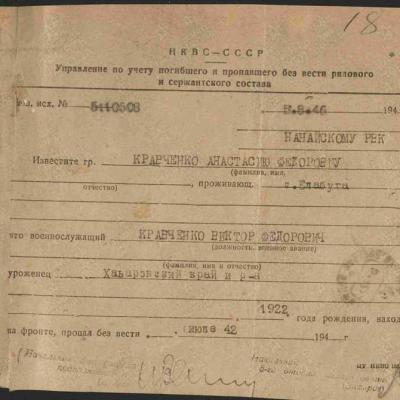 18
НКВС—СССР
Управление по учету погибшего и пропавшего без вести рядового
и сержантского состава
исх. № 5110508 8.46 194
НАНАЙСКОМУ РВК
Известите гр. КРАВЧЕНКО АНАСТАСИЮ ФЕДОРОВНУ
(фамилия, имя,
отчество) , проживающ. с.Елабуга
что военнослужащий КРАВЧЕНКО ВИКТОР ФЕДОРОВИЧ
(должность, военное звание)
(фамилия, имя и отчество)
уроженец Хабаровский край и р-н
1922 года рождения, наход
на фронте, пропал без вести июле 42 194 г
Начальник